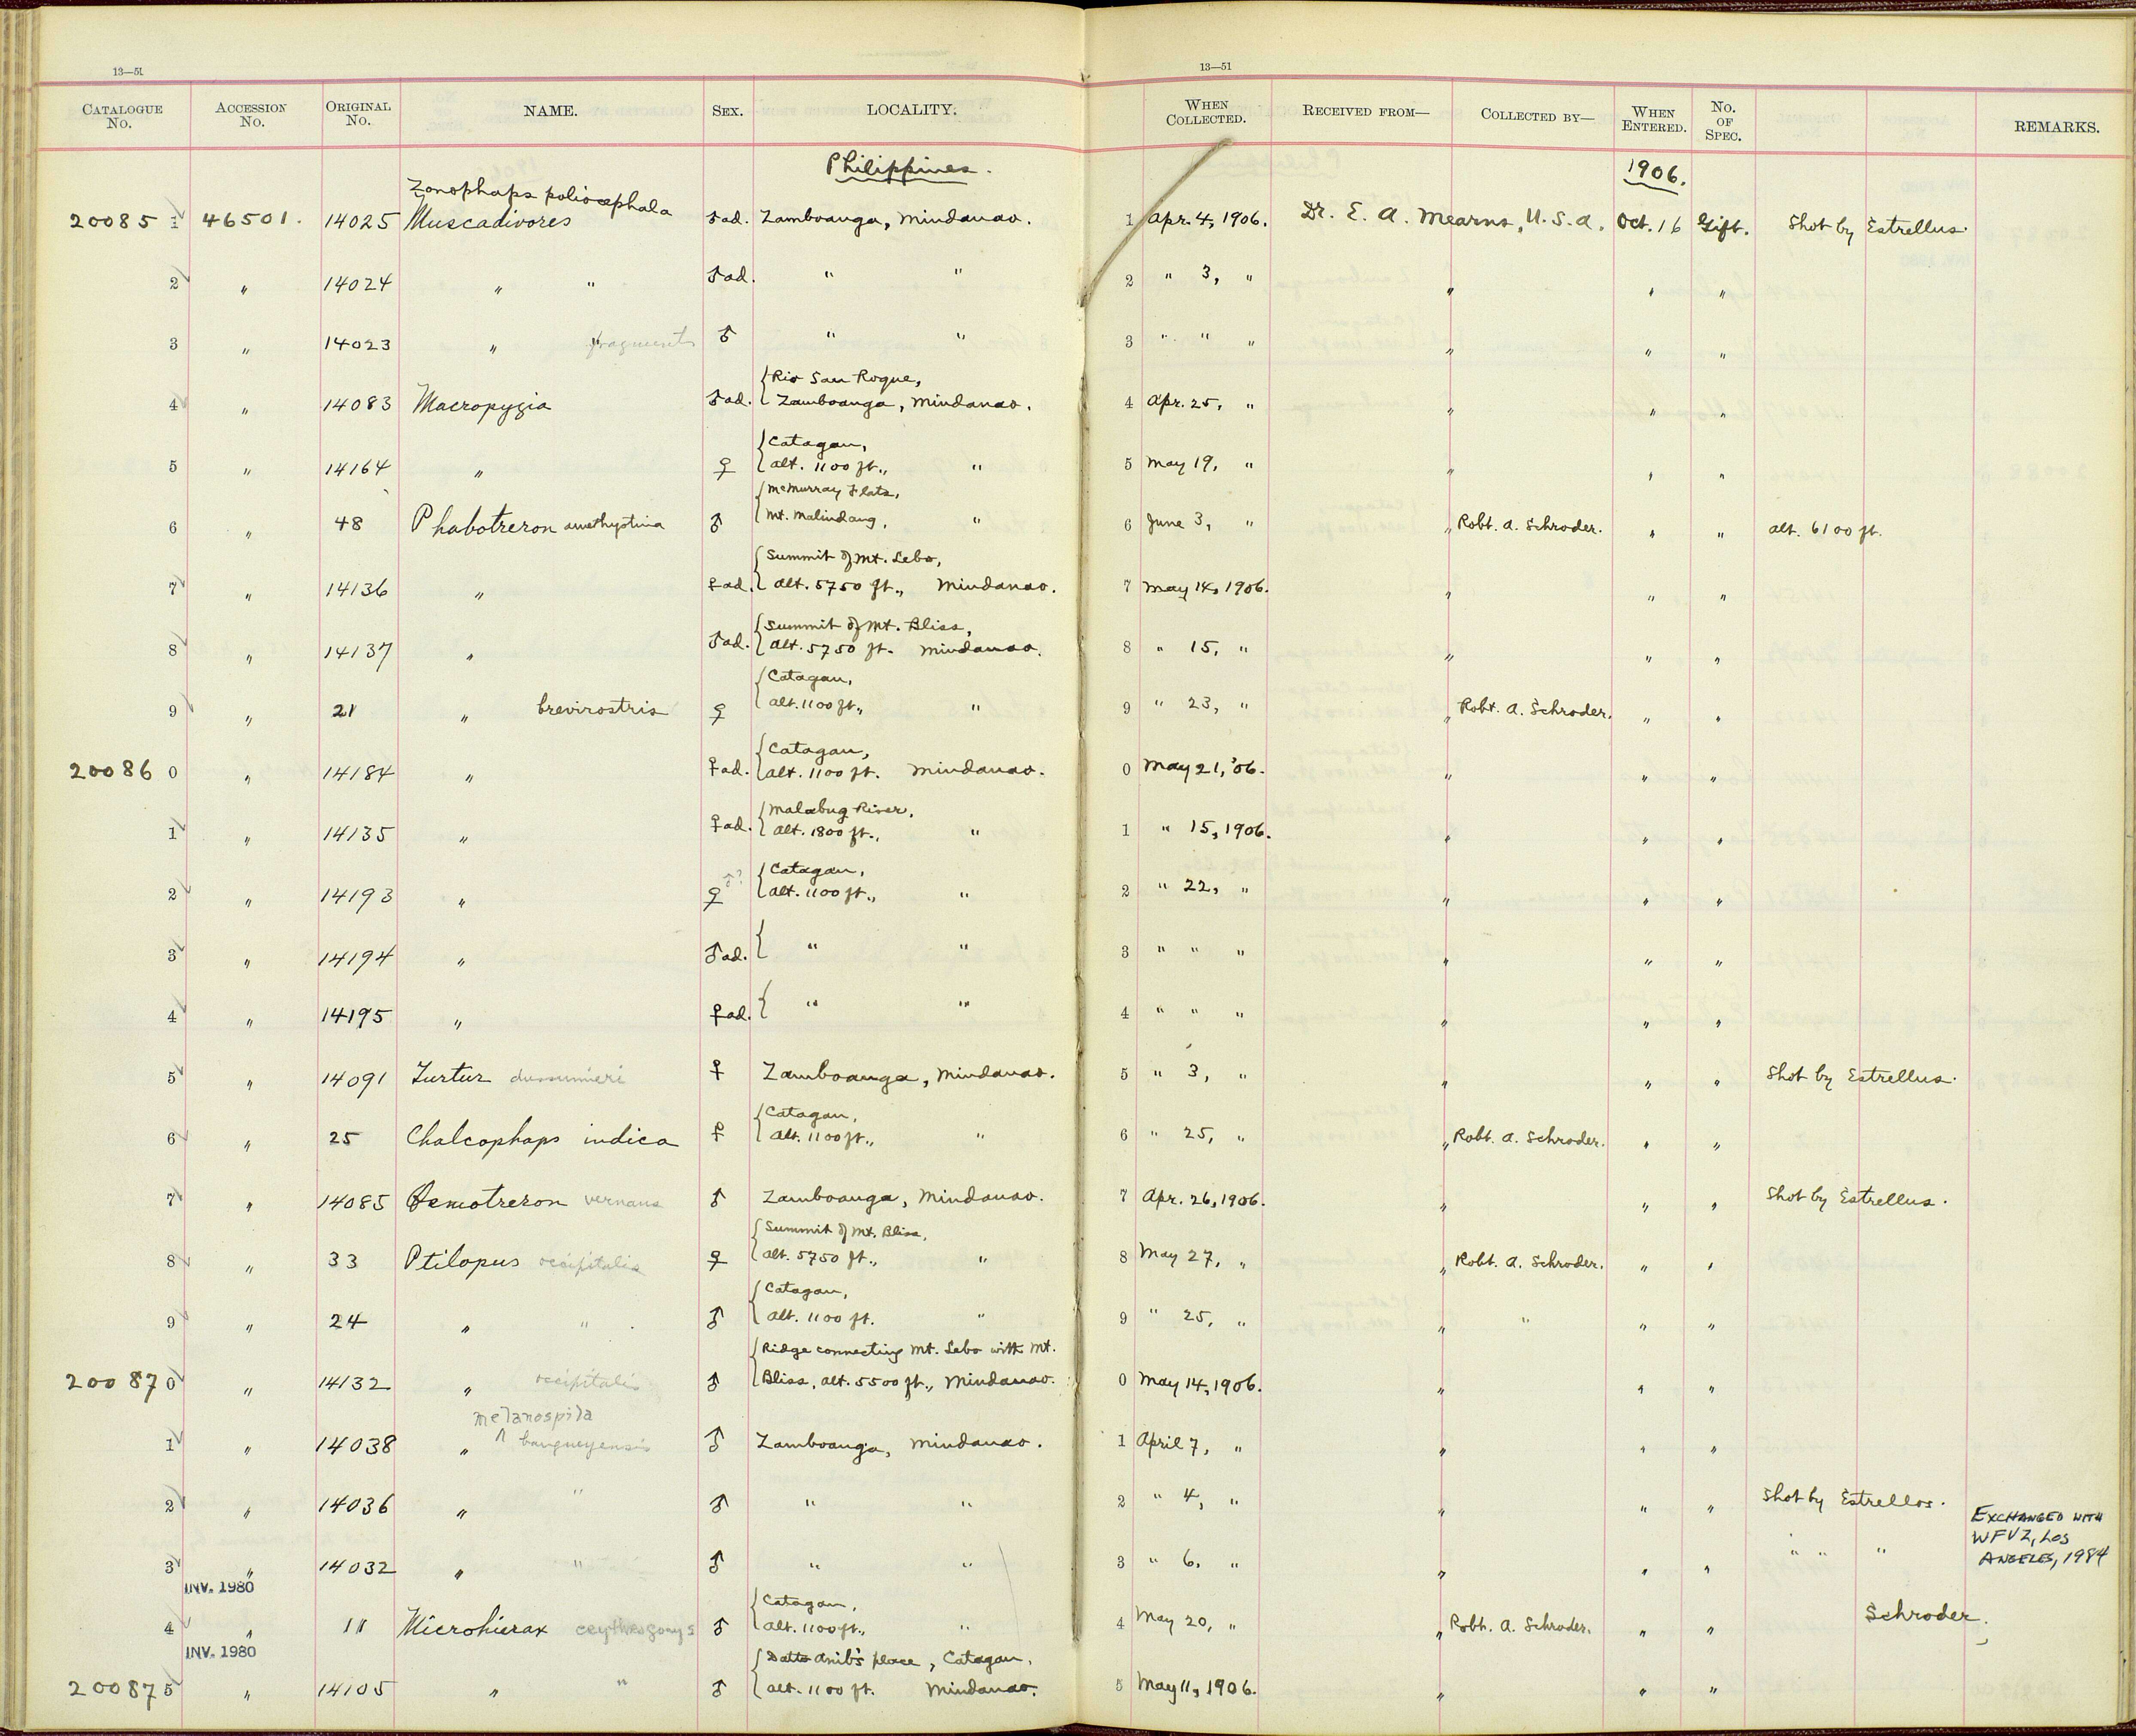 13—51
13—51
CATALOGUE No. ACCESSION No. ORIGINAL No. NAME. SEX. LOCALITY. WHEN COLLECTED. RECEIVED FROM— COLLECTED BY— WHEN ENTERED. No. OF SPEC. REMARKS.
Philippines. 1906.
Zonophaps poliocephala
20085 1 46501. 14025 Muscadivores ♂ad. Zamboanga, Mindanao. 1 Apr. 4, 1906. Dr. E. A. Mearns, U.S.A. Oct. 16 Gift. Shot by Estrellus.
2 " 14024 " " ♂ad. " " 2 " 3, " " " "
3 " 14023 " " fragments ♂ " " 3 " " " " " "
{Rio San Roque,
4 " 14083 Macropygia ♂ad. Zamboanga, Mindanao. 4 Apr. 25, " " " "
{Catagan,
5 " 14164 " ♀ alt. 1100 ft., " 5 May 19, " " " "
{McMurray Flats,
6 " 48 Phabotreron amethystina ♂ Mt. Malindang, " 6 June 3, " " Robt. A. Schroder. " " alt. 6100 ft.
{Summit of Mt. Lebo,
7 " 14136 " ♀ad. alt. 5750 ft., Mindanao. 7 May 14, 1906. " " "
{Summit of Mt. Bliss,
8 " 14137 " ♂ad. alt. 5750 ft. Mindanao. 8 " 15, " " " "
{Catagan,
9 " 21 " brevirostris ♀ alt. 1100 ft., " 9 " 23, " " Robt. A. Schroder. " "
{Catagan,
20086 0 " 14184 " ♀ad. alt. 1100 ft. Mindanao. 0 May 21, '06. " " "
{Malabug River,
1 " 14135 " ♀ad. alt. 1800 ft., " 1 " 15, 1906. " " "
{Catagan,
2 " 14193 " ♀ ♂? alt. 1100 ft., " 2 " 22, " " " "
3 " 14194 " ♂ad. { " " 3 " " " " " "
4 " 14195 " ♀ad. { " " 4 " " " " " "
5 " 14091 Turtur dussumieri ♀ Zamboanga, Mindanao. 5 " 3, " " " " Shot by Estrellus.
{Catagan,
6 " 25 Chalcophaps indica ♀ alt. 1100 ft., " 6 " 25, " " Robt. A. Schroder. " "
7 " 14085 Osmotreron vernans ♂ Zamboanga, Mindanao. 7 Apr. 26, 1906. " " " Shot by Estrellus.
{Summit of Mt. Bliss,
8 " 33 Ptilopus occipitalis ♀ alt. 5750 ft., " 8 May 27, " " Robt. A. Schroder. " "
{Catagan,
9 " 24 " " ♂ alt. 1100 ft. " 9 " 25, " " " " "
{Ridge connecting Mt. Lebo with Mt.
20087 0 " 14132 " occipitalis ♂ Bliss, alt. 5500 ft., Mindanao. 0 May 14, 1906. " " "
melanospila
1 " 14038 " ^ bangueyensis ♂ Zamboanga, Mindanao. 1 April 7, " " " "
2 " 14036 " " ♂ " " 2 " 4, " " " " Shot by Estrellos.
3 " 14032 " " ♂ " " 3 " 6, " " " " " " " EXCHANGED WITH
WFVZ, LOS
ANGELES, 1984
INV. 1980
{Catagan,
4 " 11 Microhierax erythrogonys ♂ alt. 1100 ft., " 4 May 20, " " Robt. A. Schroder. " " Schroder.
INV. 1980
{Datto Anib's place, Catagan,
20087 5 " 14105 " " ♂ alt. 1100 ft. Mindanao. 5 May 11, 1906. " " "